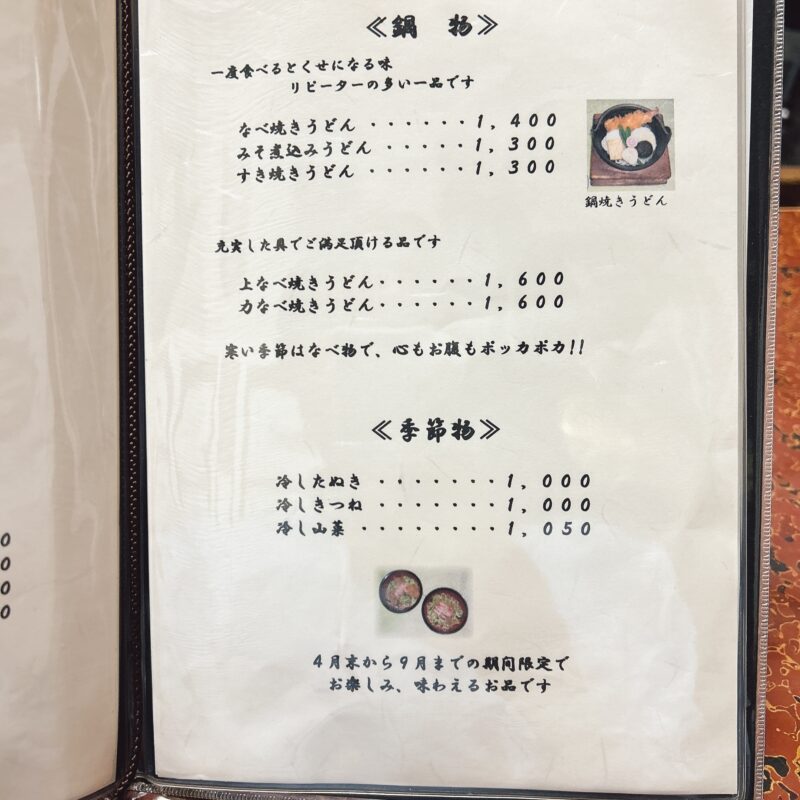 ≪鍋 物≫
一度食べるとくせになる味
リピーターの多い一品です
なべ焼きうどん ・・・・・・1,400
みそ煮込みうどん ・・・・・1,300
すき焼きうどん ・・・・・・1,300
鍋焼きうどん
充実した具でご満足頂ける品です
上なべ焼きうどん・・・・・・1,600
力なべ焼きうどん・・・・・・1,600
寒い季節はなべ物で、心もお腹もポッカポカ!!
≪季節物≫
冷したぬき ・・・・・・・・1,000
冷しきつね ・・・・・・・・1,000
冷し山菜 ・・・・・・・・・1,050
4月末から9月までの期間限定で
お楽しみ、味わえるお品です
0
0
0
0